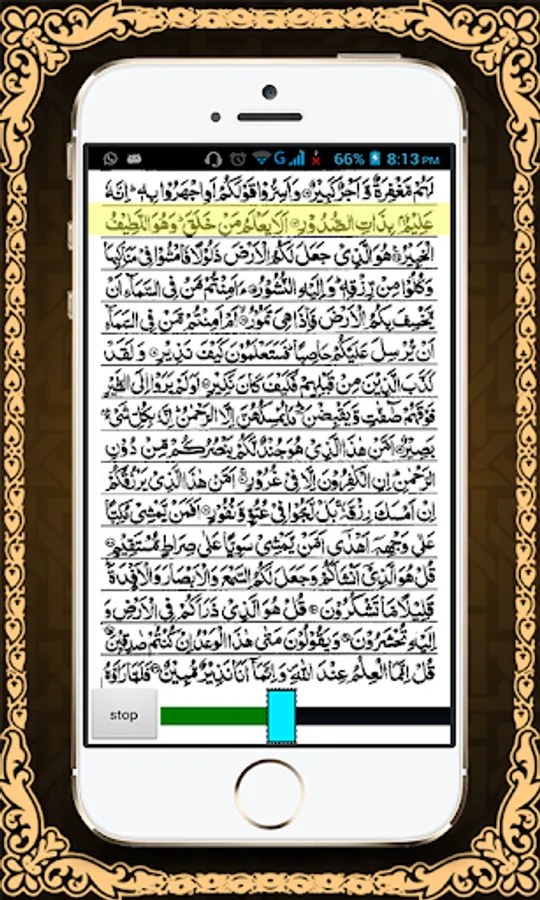 66% 8:13 PM
لَهُمْ مَّغْفِرَةٌ وَّ اَجْرٌ كَبِيْرٌ وَاَسِرُّوْا قَوْلَكُمْ اَوِاجْهَرُوْا بِهٖ اِنَّهٗ
عَلِيْمٌۢ بِذَاتِ الصُّدُوْرِ اَلَا يَعْلَمُ مَنْ خَلَقَ وَهُوَ اللَّطِيْفُ
الْخَبِيْرُ هُوَ الَّذِيْ جَعَلَ لَكُمُ الْاَرْضَ ذَلُوْلًا فَامْشُوْا فِيْ مَنَاكِبِهَا
وَكُلُوْا مِنْ رِّزْقِهٖ وَ اِلَيْهِ النُّشُوْرُ ءَاَمِنْتُمْ مَّنْ فِي السَّمَآءِ اَنْ
يَّخْسِفَ بِكُمُ الْاَرْضَ فَاِذَا هِيَ تَمُوْرُ اَمْ اَمِنْتُمْ مَّنْ فِي السَّمَآءِ
اَنْ يُّرْسِلَ عَلَيْكُمْ حَاصِبًا فَسَتَعْلَمُوْنَ كَيْفَ نَذِيْرِ وَ لَقَدْ
كَذَّبَ الَّذِيْنَ مِنْ قَبْلِهِمْ فَكَيْفَ كَانَ نَكِيْرِ اَوَلَمْ يَرَوْا اِلَى الطَّيْرِ
فَوْقَهُمْ صٰٓفّٰتٍ وَّيَقْبِضْنَ مَا يُمْسِكُهُنَّ اِلَّا الرَّحْمٰنُ اِنَّهٗ بِكُلِّ شَيْءٍۢ
بَصِيْرٌ اَمَّنْ هٰذَا الَّذِيْ هُوَ جُنْدٌ لَّكُمْ يَنْصُرُكُمْ مِّنْ دُوْنِ
الرَّحْمٰنِ اِنِ الْكٰفِرُوْنَ اِلَّا فِيْ غُرُوْرٍ اَمَّنْ هٰذَا الَّذِيْ يَرْزُقُكُمْ
اِنْ اَمْسَكَ رِزْقَهٗ بَلْ لَّجُّوْا فِيْ عُتُوٍّ وَّ نُفُوْرٍ اَفَمَنْ يَّمْشِيْ مُكِبًّا
عَلٰى وَجْهِهٖٓ اَهْدٰٓى اَمَّنْ يَّمْشِيْ سَوِيًّا عَلٰى صِرَاطٍ مُّسْتَقِيْمٍ
قُلْ هُوَ الَّذِيْٓ اَنْشَاَكُمْ وَجَعَلَ لَكُمُ السَّمْعَ وَالْاَبْصَارَ وَالْاَفْـِٕدَةَ
قَلِيْلًا مَّا تَشْكُرُوْنَ قُلْ هُوَ الَّذِيْ ذَرَاَكُمْ فِي الْاَرْضِ وَ
اِلَيْهِ تُحْشَرُوْنَ وَيَقُوْلُوْنَ مَتٰى هٰذَا الْوَعْدُ اِنْ كُنْتُمْ صٰدِقِيْنَ
قُلْ اِنَّمَا الْعِلْمُ عِنْدَ اللّٰهِ وَاِنَّمَآ اَنَا نَذِيْرٌ مُّبِيْنٌ فَلَمَّا رَاَوْهُ
stop